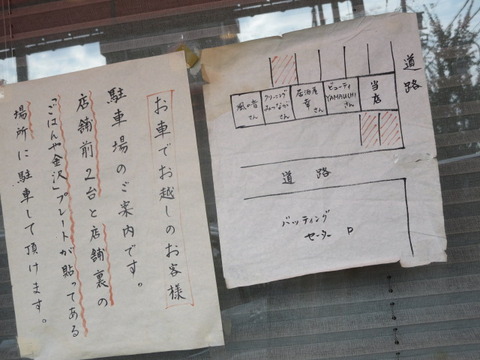 お車でお越しのお客様
駐車場のご案内です。
店舗前2台と店舗裏の
「ごはんや金沢」プレートが貼ってある
場所に駐車して頂けます。
道路
当店
ビューティ
YAMAUCHI
さん
居酒屋
幸
さん
クリーニング
みつなが
さん
風の音
さん
道路
バッティング
センター P